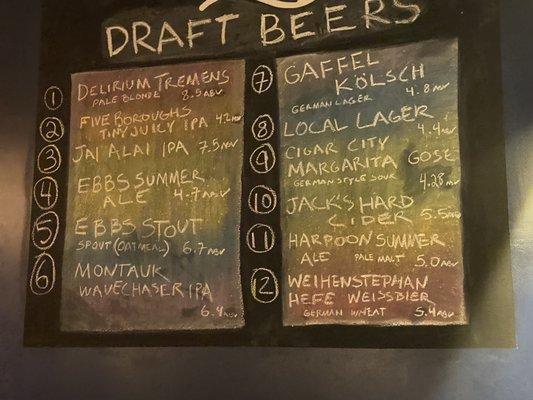 DRAFT BEERS
1 DELIRIUM TREMENS
PALE BLONDE 8.5 ABV
2 FIVE BOROUGHS
TINY JUICY IPA 4.2 ABV
3 JAI ALAI IPA 7.5 ABV
4 EBBS SUMMER
ALE 4.7 ABV
5 EBBS STOUT
SPOUT (OATMEAL) 6.7 ABV
6 MONTAUK
WAVECHASER IPA
6.4 ABV
7 GAFFEL
KÖLSCH
GERMAN LAGER 4.8 ABV
8 LOCAL LAGER
4.4 ABV
9 CIGAR CITY
MARGARITA GOSE
GERMAN STYLE SOUR 4.28 ABV
10 JACK'S HARD
CIDER 5.5 ABV
11 HARPOON SUMMER
ALE PALE MALT 5.0 ABV
12 WEIHENSTEPHAN
HEFE WEISSBIER
GERMAN WHEAT 5.4 ABV